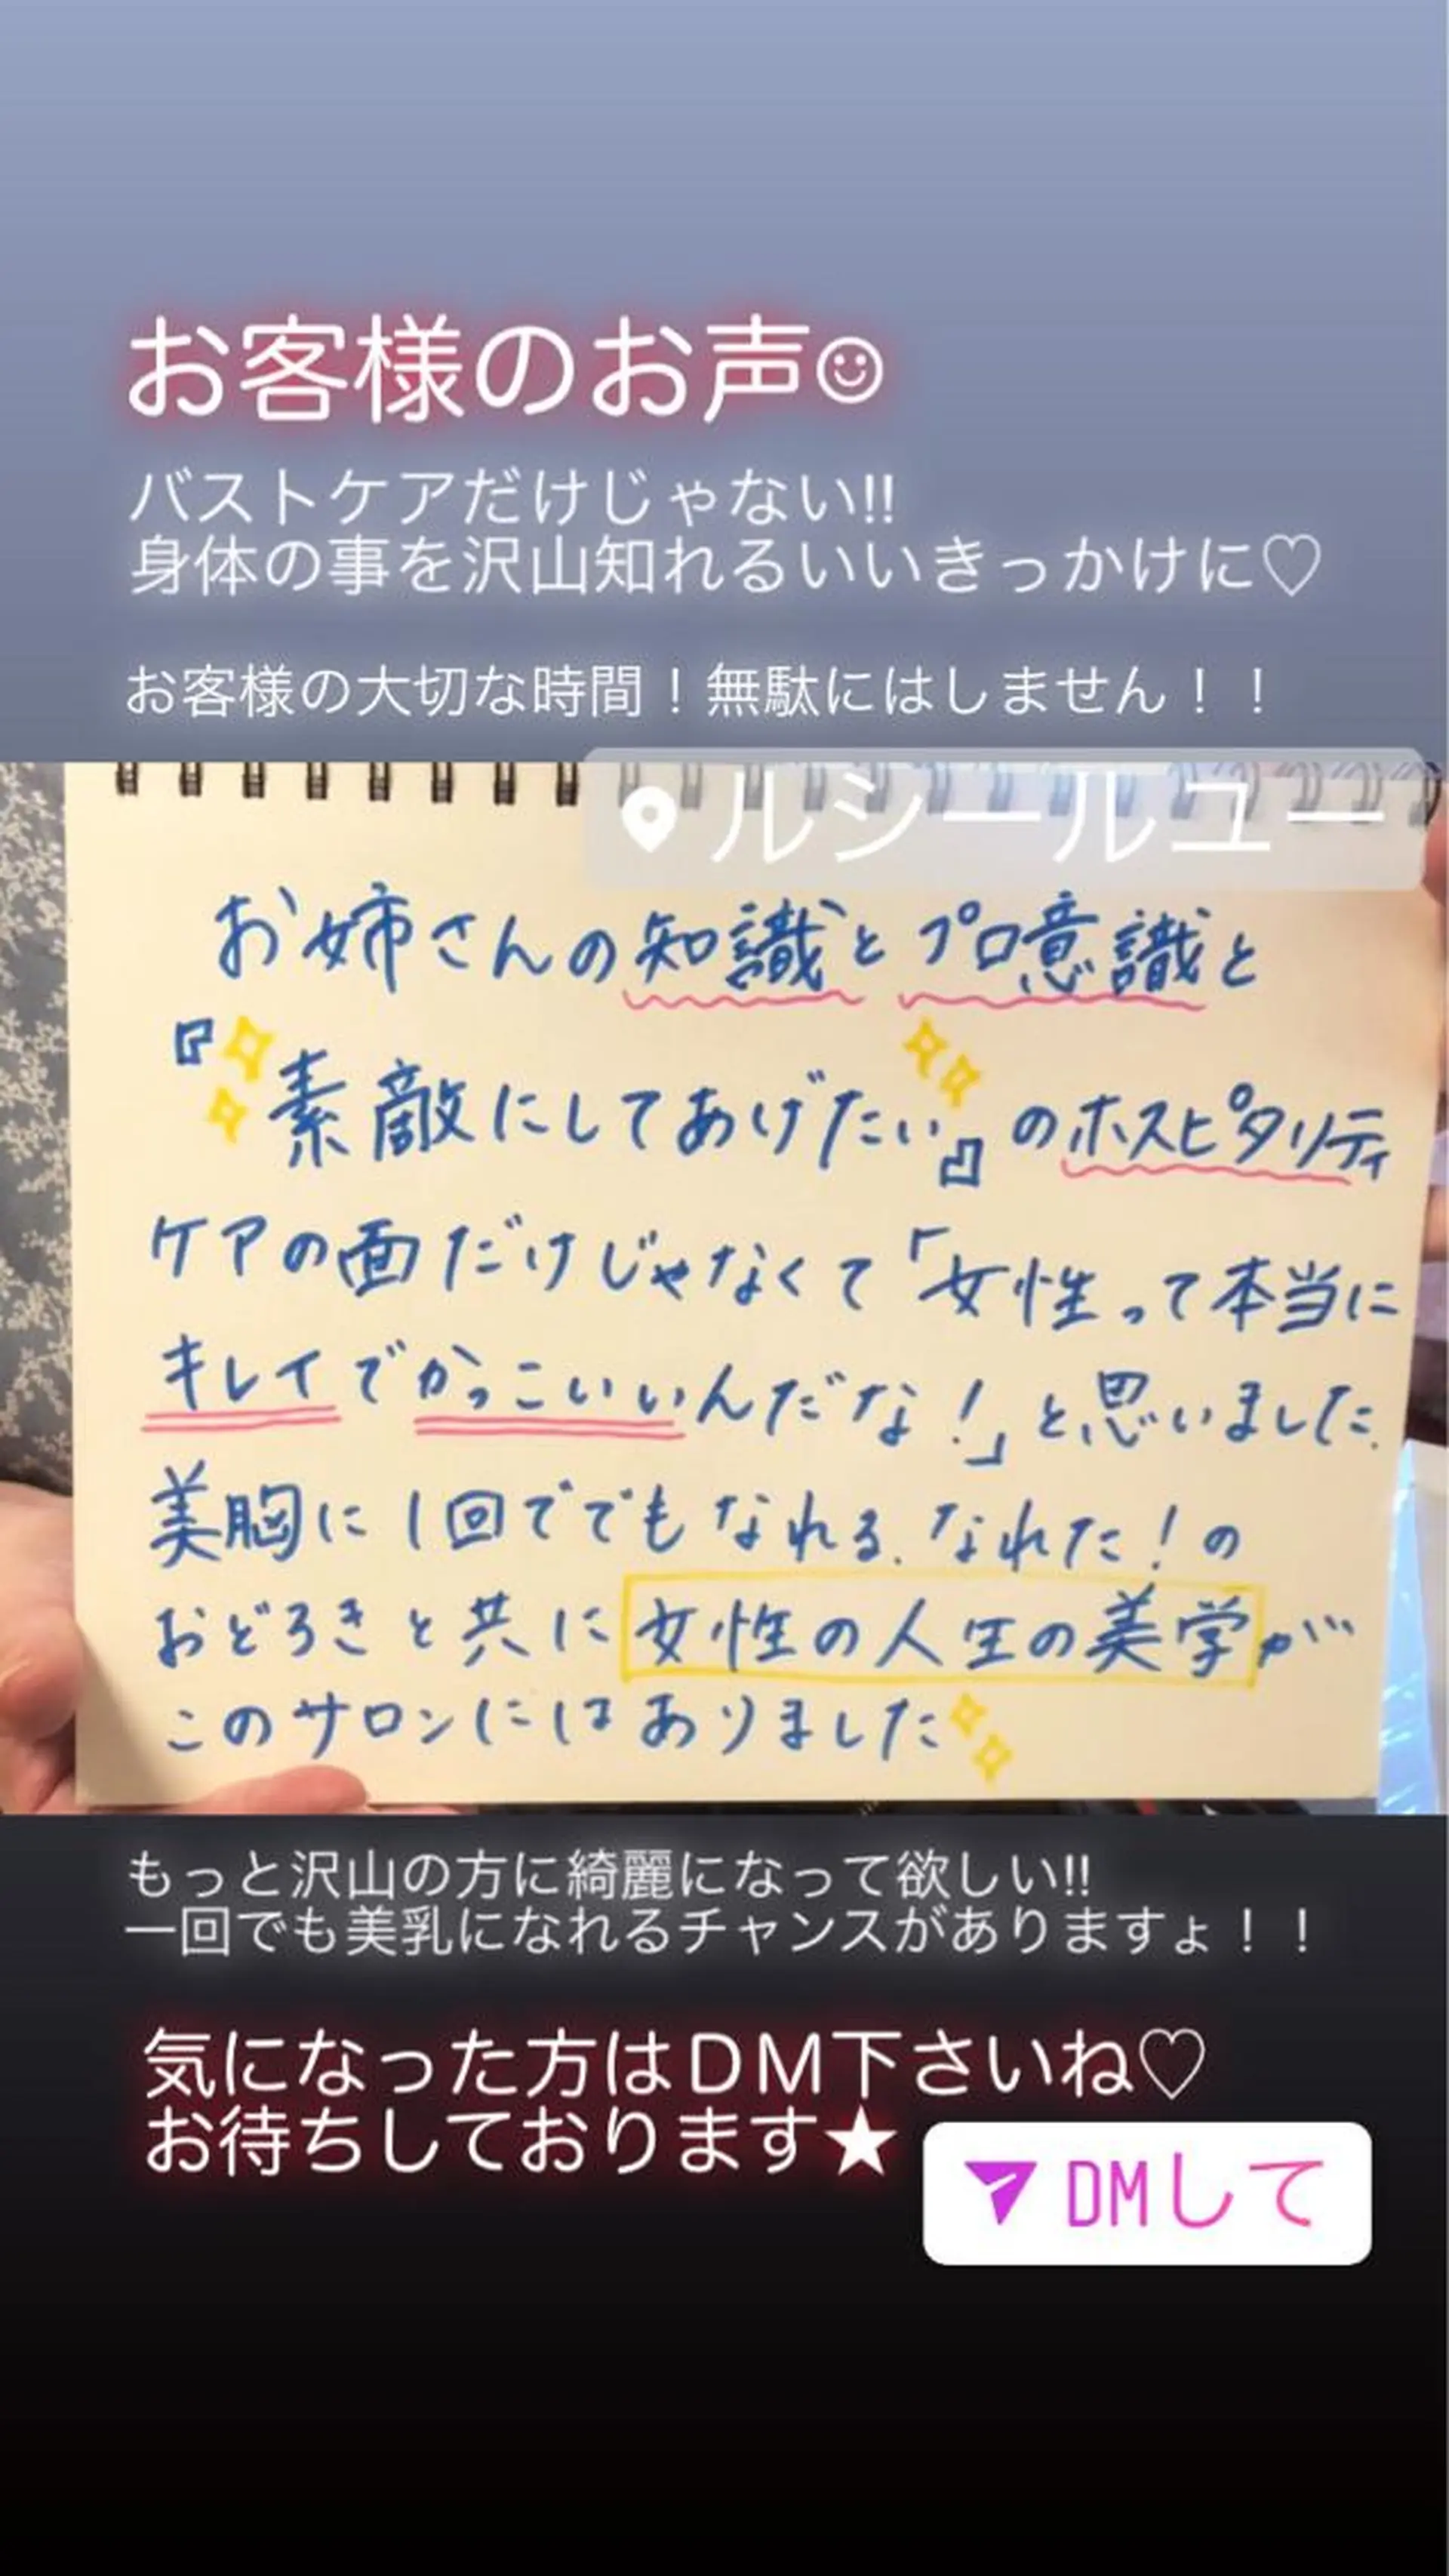 お客様のお声☺
バストケアだけじゃない!!
身体の事を沢山知れるいいきっかけに♡
お客様の大切な時間！無駄にはしません！！
ルシールユー
お姉さんの知識とプロ意識と
『素敵にしてあげたい』のホスピタリティ
ケアの面だけじゃなくて「女性って本当に
キレイでかっこいいんだな！」と思いました.
美胸に1回ででもなれる.なれた！の
おどろきと共に女性の人生の美学が
このサロンにはありました
もっと沢山の方に綺麗になって欲しい!!
一回でも美乳になれるチャンスがありますょ！！
気になった方はＤＭ下さいね♡
お待ちしております★
DMして